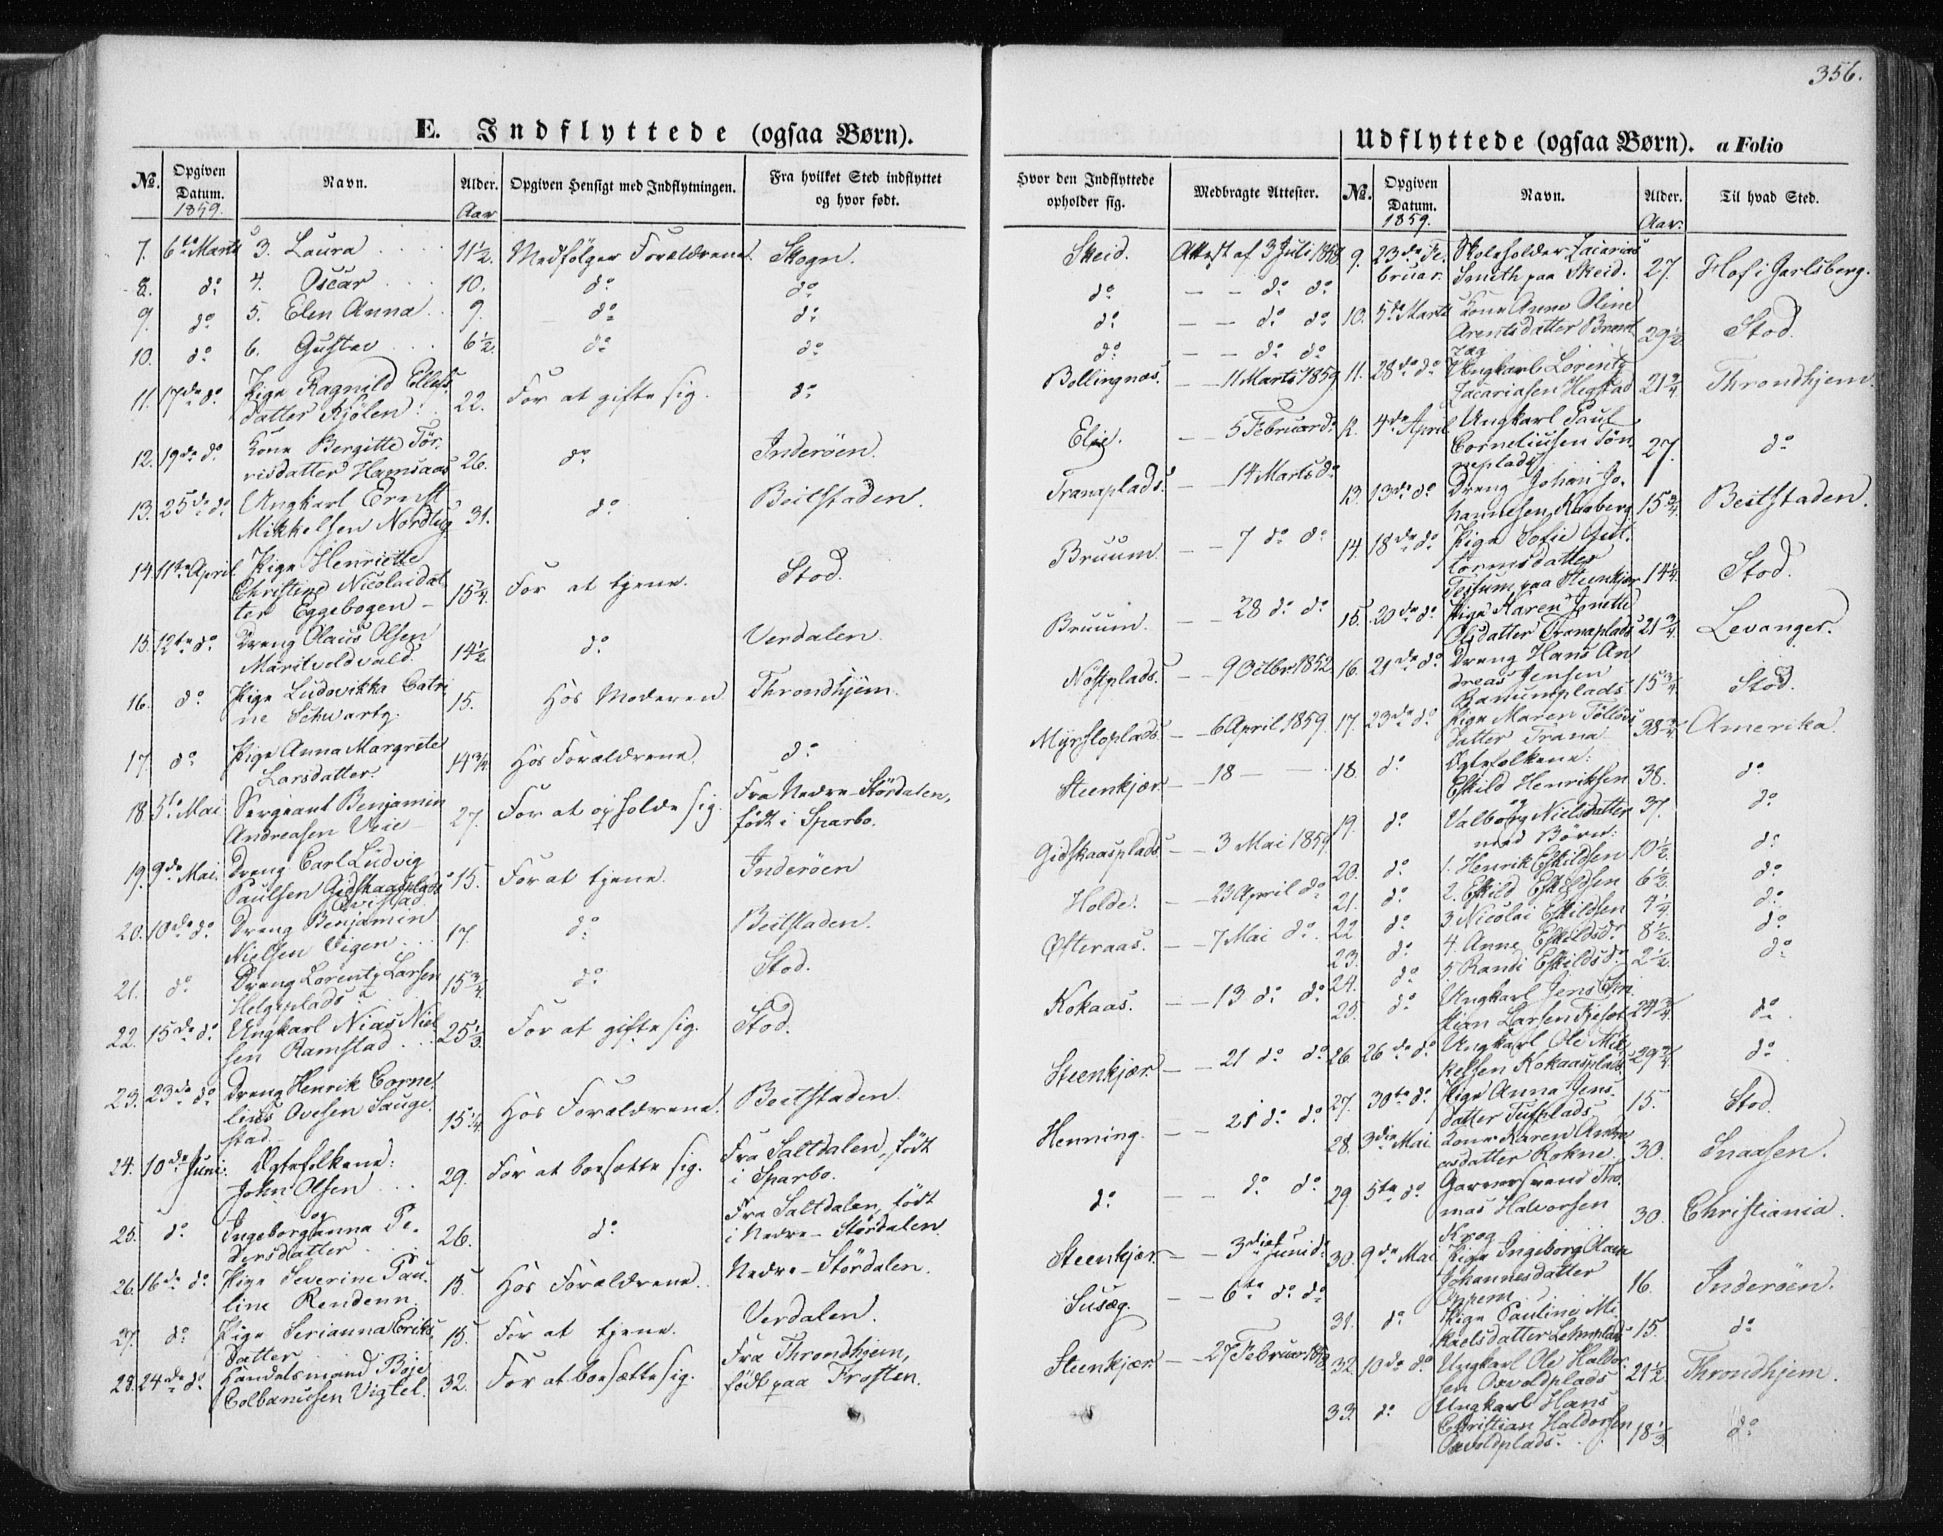 356.
E. Indflyttede (ogsaa Børn).
No. Opgiven Datum. Navn. Alder. Opgiven Hensigt med Indflytningen. Fra hvilket Sted indflyttet og hvor født. Hvor den Indflyttede opholder sig. Medbragte Attester.
1859. Aar
7. 6te Marts 3. Laura 11½. Medfølger Forældrene. Skogn. Skeid. Attest af 3 Juli 1858
8. do 4. Oscar 10. do do do — — do do
9. do 5. Elen Anna 9. do do do — — do do
10. do 6. Gustav 6½. do do do — — do do
11. 17de do Pige Ragnild Ellefs
datter Kjölen 22. For at gifte sig. do Bollingnæs. — 11 Marts 1859
12. 19de do Kone Bergitte Tör-
risdatter Hamsaas 26. do Inderöen. — — 5 Februar do
13. 25de do Ungkarl Ernst
Mikkelsen Nordleg 31. do Beitstaden. Tranaplads. — — 14 Marts do
14. 11te April Pige Henriette
Christine Nicolaidat
ter Eggebogen 15¼. For at tjene. Stod. Bruum. — — 7 do do
15. 12te do Dreng Olaus Olsen
Maritvoldvald. 14½ do Verdalen. Bruum. — — 28 do do
16. do Pige Ludovikka Catri
ne Schwartz. 15. Hos Moderen Throndhjem. Nöstplads. — — 9 Octbr 1852
17. do Pige Anna Margrete
Larsdatter. 14¾. Hos Forældrene. do Myrsloplads — — 6 April 1859.
18. 5te Mai Sergeant Benjamin
Andreasen Veie 27. For at opholde sig. Fra Nedre-Stördalen,
født i Sparbo. Steenkjær — 18 — —
19. 9de Mai. Dreng Carl Ludvig
Paulsen Gidskaasplads 15. For at tjene. Inderöen Gidskaasplads — — 3 Mai 1859
20. 10de do Dreng Benjamin
Nielsen Vigen 17. do Beitstaden. Holde. — — 23 April do
21. do Dreng Lorentz Larsen
Helgeplads 15¾. do Stod. Østeraas. — — 7 Mai do
22. 15de do Ungkarl Nias Niel
sen Ramstad 25⅓. For at gifte sig. Stod. Kokaas. — — 13 do do
23. 23de do Dreng Henrik Corne
lius Ovesen Sauge-
stad 15¼. Hos Forældrene. Beitstaden. Steenkjær. — — 21 do do
24. 10de Juni. Ægtefolkene:
John Olsen 29. For at bosætte sig. Fra Saltdalen, født
i Sparbo. Henning. — — 21 do do
25. do og
Ingeborganna Pe-
dersdatter 26. do Fra Saltdalen, født
i Nedre-Stördalen. do — — do do
26. 16de do Pige Severine Pau-
line Rendenn 15. Hos Forældrene. Nedre-Stördalen. Steenkjær. — — 3die Juni do
27. do Pige Serianna Eriks-
datter 15. For at tjene. Verdalen. Susæg. — — 6te do do
28. 24de do Handelsmand Boje
Colbanussen Vigtel. 32. For at bosætte sig. Fra Throndhjem,
født paa Frosten. Steenkjær — — 27 Februar 1858
Udflyttede (ogsaa Børn). a Folio
No. Opgiven Datum. Navn. Alder. Til hvad Sted.
1859. Aar.
9. 23de Fe-
bruar. Skoleholder Zacarias
Smith paa Skeid. 27. Hof i Jarlsberg.
10. 5te Marts Kone Anne Oline
Arentsdatter Brandt
zæg 29½ Stod.
11. 28de do Ungkarl Lorentz
Zacariasen Hegstad 21¾ Throndhjem.
12. 4de April Ungkarl Paul
Corneliusen Tön-
neplads 27. do
13. 13de do Dreng Johan Jo-
hannesen Raaberg 15¾. Beitstaden.
14. 18de do Pige Sofie Gut-
tormsdatter
Tessum paa Steenkjær 14½. Stod.
15. 20de do Pige Karen Jonette
Olsdatter Tranaplads 21¾ Levanger.
16. 21de do Dreng Hans An
dreas Jensen
Baruumplads 15¾. Stod.
17. 23de do Pige Maren Töllevs
datter Trana 38¾ Amerika.
18. do Ægtefolkene:
Eskild Henriksen 38. do
19. do og
Valborg Nielsdatter 37. do
med Børn:
20. do 1. Henrik Eskildsen 10½. do
21. do 2. Eskild Eskildsen 6½. do
22. do 3 Nicolai Eskildsen 4¼. do
23. do 4. Anne Eskildsdr. 8½. do
24. do 5 Randi Eskildsdr. 2½. do
25. do Ungkarl Jens Chri
stian Larsen 24¾. do
26. 26de do Ungkarl Ole Mik
kelsen Kokaasplads 29¾. do
27. 30te do Pige Anna Jens-
datter Tufplads 15. Stod.
28. 3die Mai Kone Karen Andre
asdatter Rokne 30. Snaasen.
29. 5te do Garversvend Tho-
mas Halvorsen
Krog 30. Christiania.
30. 9de Mai Pige Ingeborg Olave
Johannesdatter
Oppem 16. Inderöen.
31. do Pige Pauline Mi
kaelsdatter Lehmplads 15. do
32. 10de do Ungkarl Ole Haldor-
sen Oxvoldplads 21½. Throndhjem.
33. do Ungkarl Hans
Christian Haldorsen
Oxvoldplads. 18⅓. do